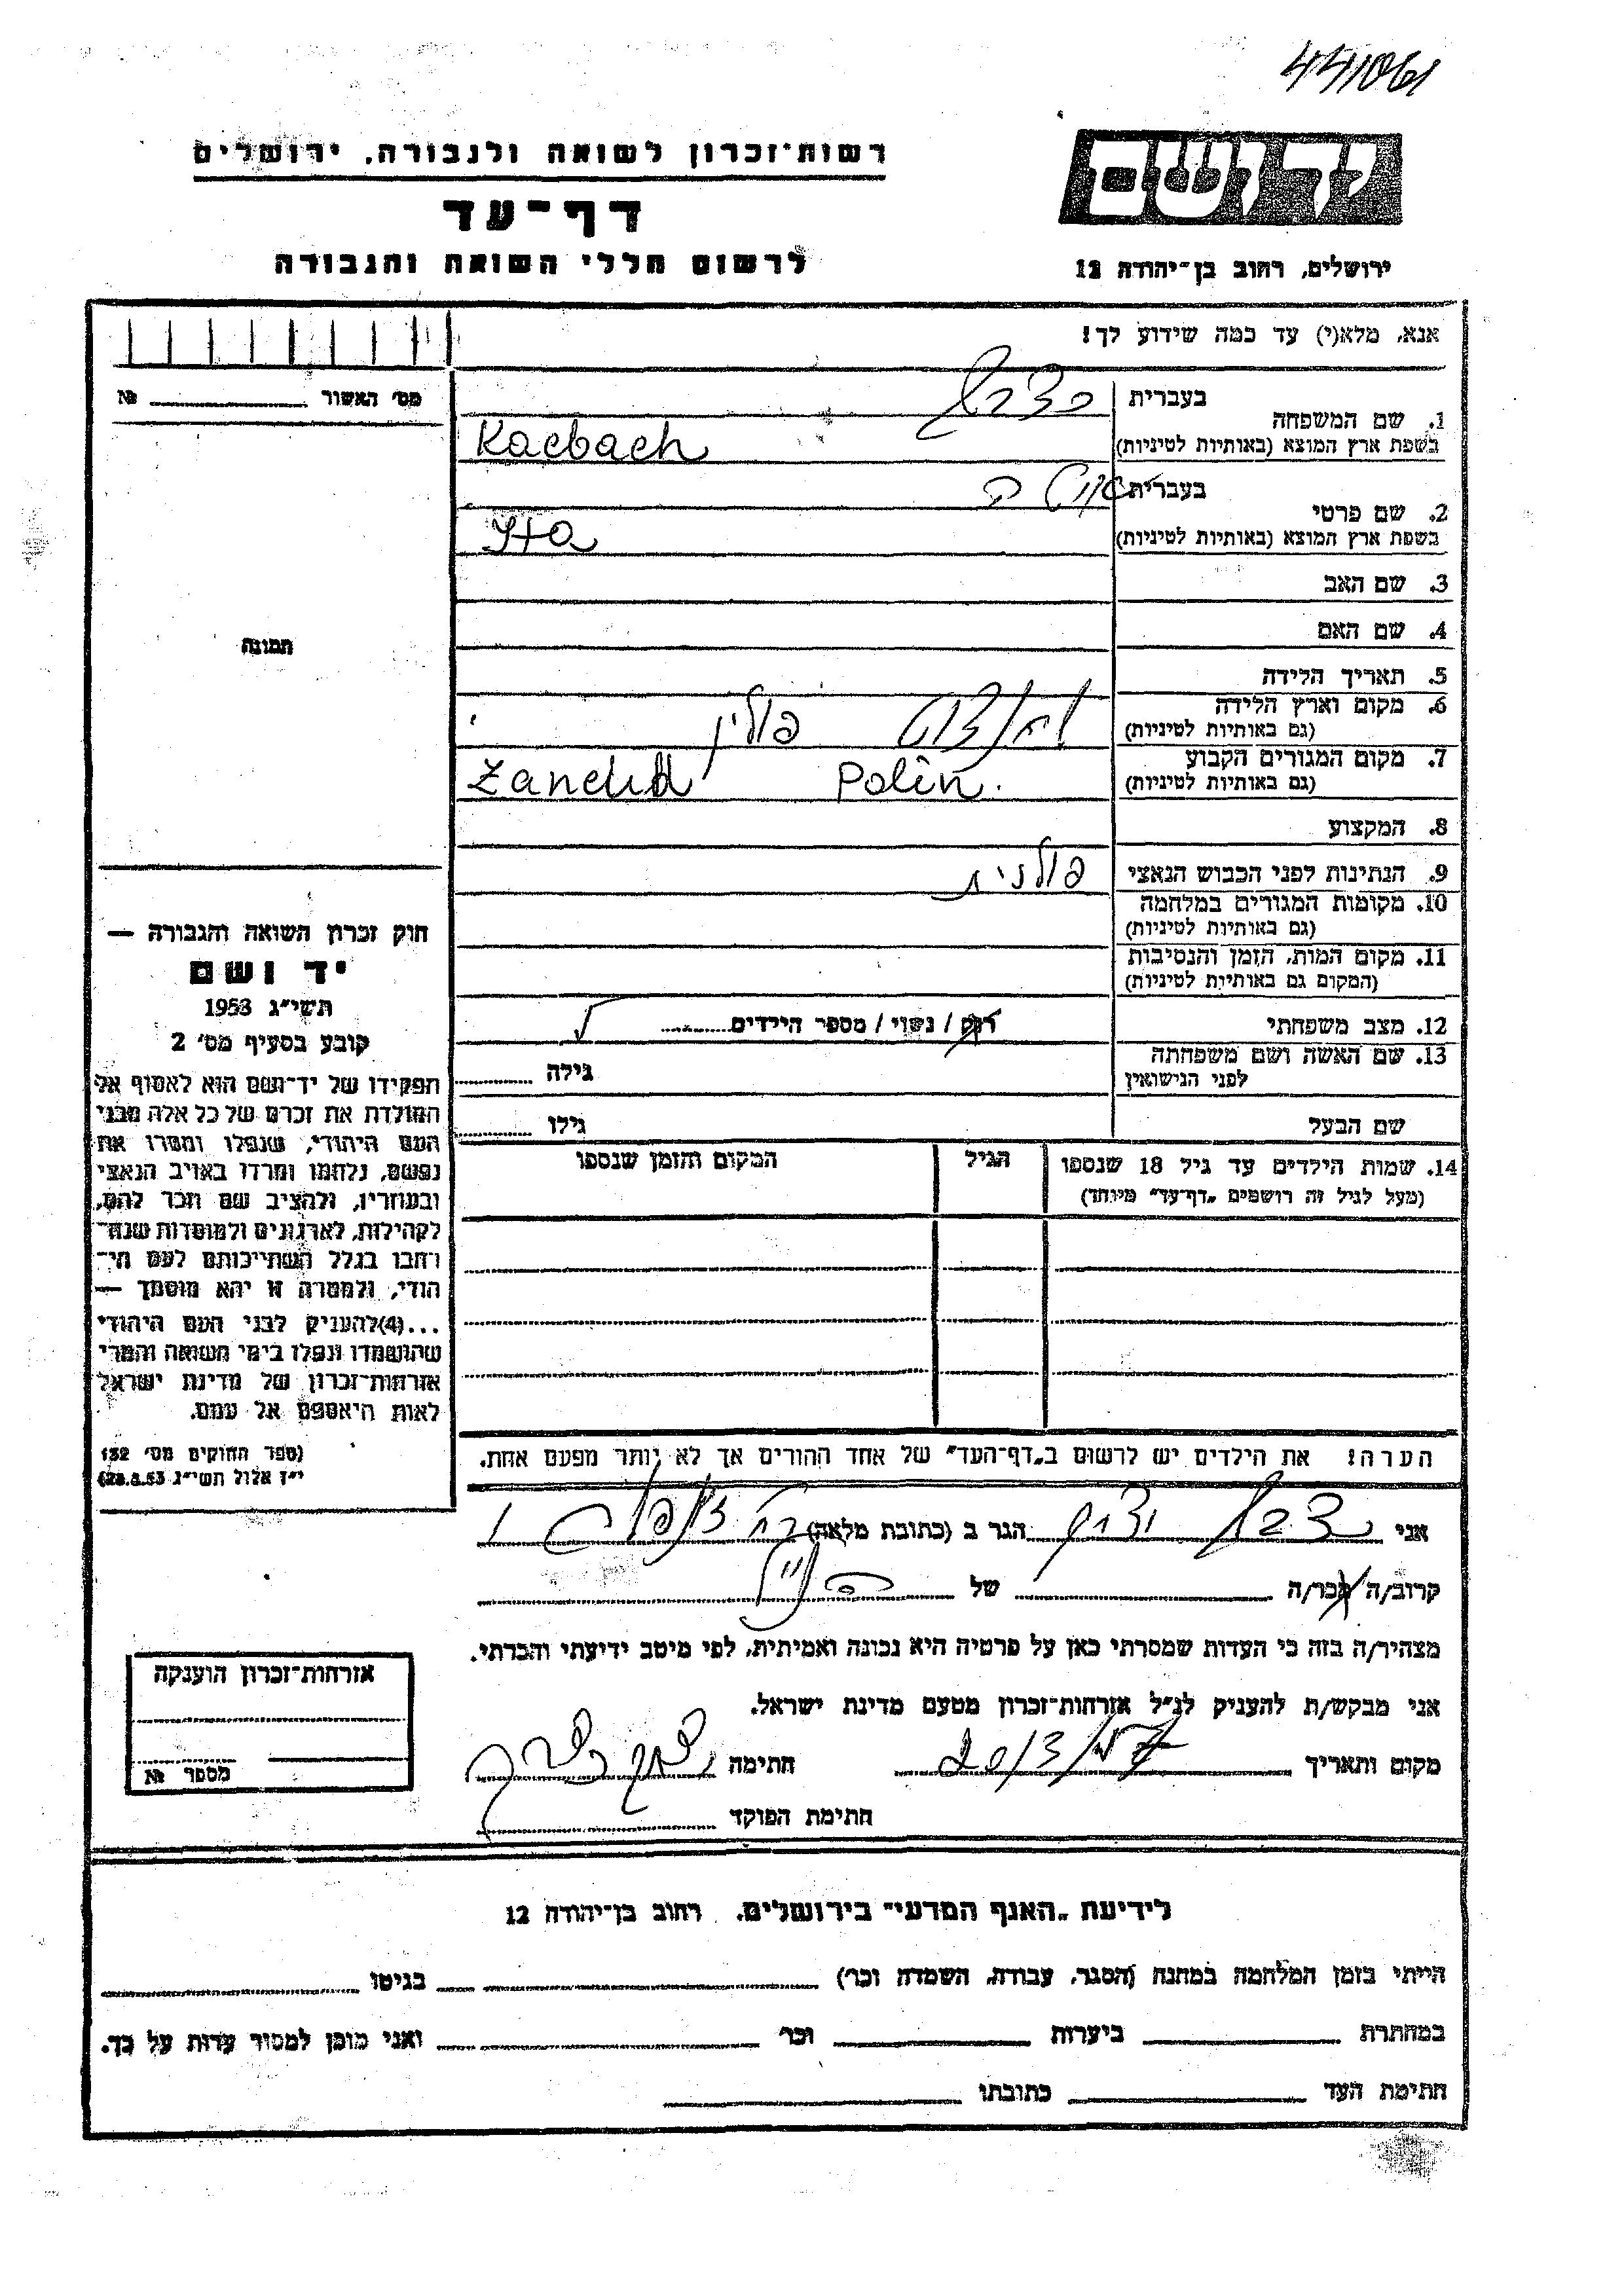 441061
יד ושם
רשות־זכרון לשואה ולגבורה, ירושלים
דף־עד
לרשום חללי השואה והגבורה
ירושלים, רחוב בן־יהודה 12
אנא, מלא(י) עד כמה שידוע לך!
מס׳ האשור № 
1. שם המשפחה בעברית
בשפת ארץ המוצא (באותיות לטיניות) Kacbach
2. שם פרטי בעברית
בשפת ארץ המוצא (באותיות לטיניות) Yta
3. שם האב
4. שם האם
תמונה
5. תאריך הלידה
6. מקום וארץ הלידה
(גם באותיות לטיניות) פולין
7. מקום המגורים הקבוע
(גם באותיות לטיניות) Polin.
8. המקצוע
9. הנתינות לפני הכבוש הנאצי פולנית
10. מקומות המגורים במלחמה
(גם באותיות לטיניות)
11. מקום המות, הזמן והנסיבות
(המקום גם באותיות לטיניות)
12. מצב משפחתי רווק / נשוי / מספר הילדים
13. שם האשה ושם משפחתה
לפני הנישואין גילה
שם הבעל גילו
14. שמות הילדים עד גיל 18 שנספו הגיל המקום והזמן שנספו
(מעל לגיל זה רושמים „דף־עד״ מיוחד)
חוק זכרון השואה והגבורה —
יד ושם
תשי״ג 1953
קובע בסעיף מס׳ 2
תפקידו של יד־ושם הוא לאסוף אל
המולדת את זכרם של כל אלה מבני
העם היהודי, שנפלו ומסרו את
נפשם, נלחמו ומרדו באויב הנאצי
ובעוזריו, ולהציב שם וזכר להם,
לקהילות, לארגונים ולמוסדות שנח־
רחבו בגלל השתייכותם לעם הי־
הודי, ולמטרה זו יהא מוסמך —
...(4)להעניק לבני העם היהודי
שהושמדו ונפלו בימי השואה והמרי
אזרחות־זכרון של מדינת ישראל
לאות היאספם אל עמם.
(ספר החוקים מס׳ 132
י״ז אלול תשי״ג 28.8.53)
הערה! את הילדים יש לרשום ב„דף־העד״ של אחד ההורים אך לא יותר מפעם אחת.
אני הגר ב (כתובת מלאה)
קרוב/ה מכר/ה של
מצהיר/ה בזה כי העדות שמסרתי כאן על פרטיה היא נכונה ואמיתית, לפי מיטב ידיעתי והכרתי.
אני מבקש/ת להעניק לנ״ל אזרחות־זכרון מטעם מדינת ישראל.
מקום ותאריך חתימה
חתימת הפוקד
אזרחות־זכרון הוענקה
מספר №
לידיעת „האגף המדעי״ בירושלים, רחוב בן־יהודה 12
הייתי בזמן המלחמה במחנה (הסגר, עבודה, השמדה וכו׳) בגיטו
במחתרת ביערות וכו׳ ואני מוכן למסור עדות על כך.
חתימת העד כתובתו